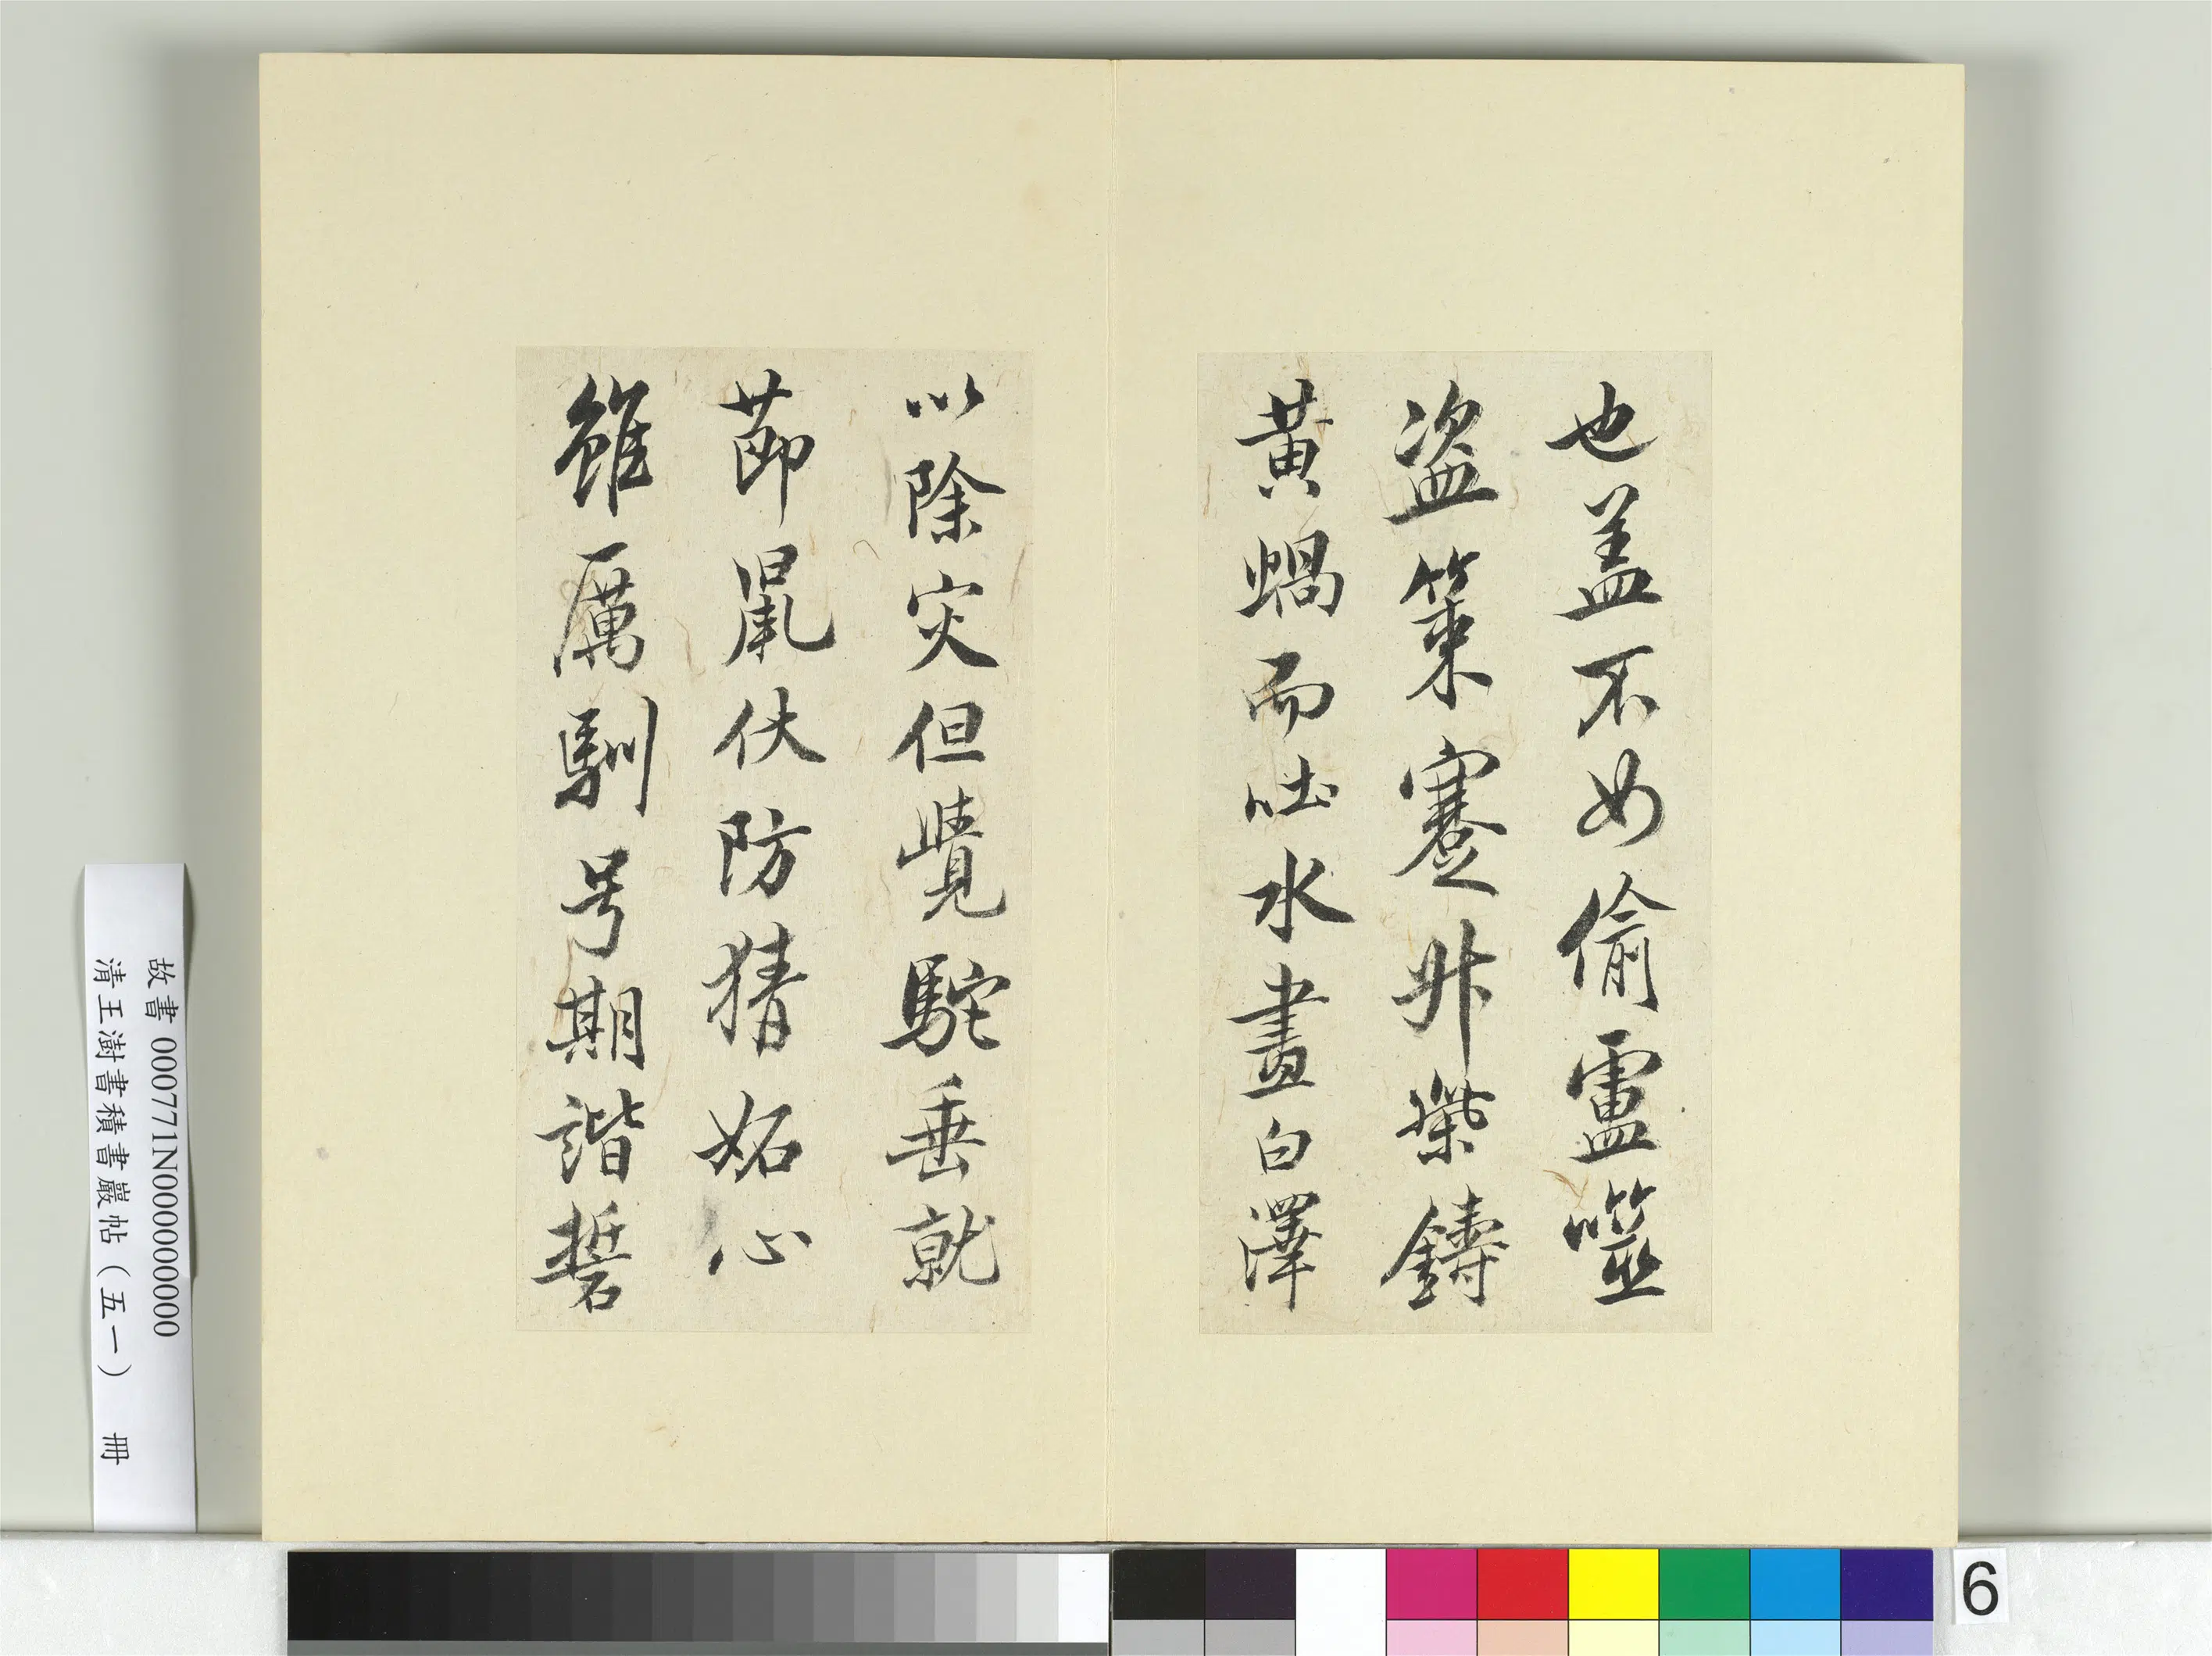 也盖不如偷靈噬
盗策蹇升槃鑄
黃蝸而吐水畫白澤
以除灾但覺駝垂就
節鼠伏防猜妬心
雖厲馴号期諧誓
故書 000771N000000000
清王澍書積書巖帖（五一） 冊
6